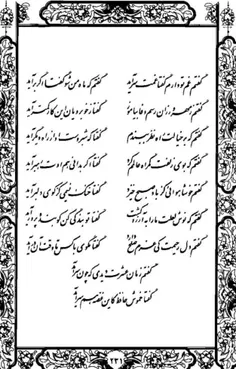 گفتم غم تو دارم گفتا غمت سرآید گفتم که ماه من شو گفتا اگر برآید
گفتم ز مهرورزان رسم وفا بیاموز گفتا ز خوبرویان این کار کمتر آید
گفتم که بر خیالت راه نظر ببندم گفتا که شب رو است او از راه دیگر آید
گفتم که بوی زلفت گمراه عالمم کرد گفتا اگر بدانی هم اوت رهبر آید
گفتم خوشا هوایی کز باد صبح خیزد گفتا خنک نسیمی کز کوی دلبر آید
گفتم که نوش لعلت ما را به آرزو کشت گفتا تو بندگی کن کو بنده پرور آید
گفتم دل رحیمت کی عزم صلح دارد گفتا مگوی با کس تا وقت آن درآید
گفتم زمان عشرت دیدی که چون سرآمد
گفتا خموش حافظ کاین غصه هم سرآید
۲۳۱